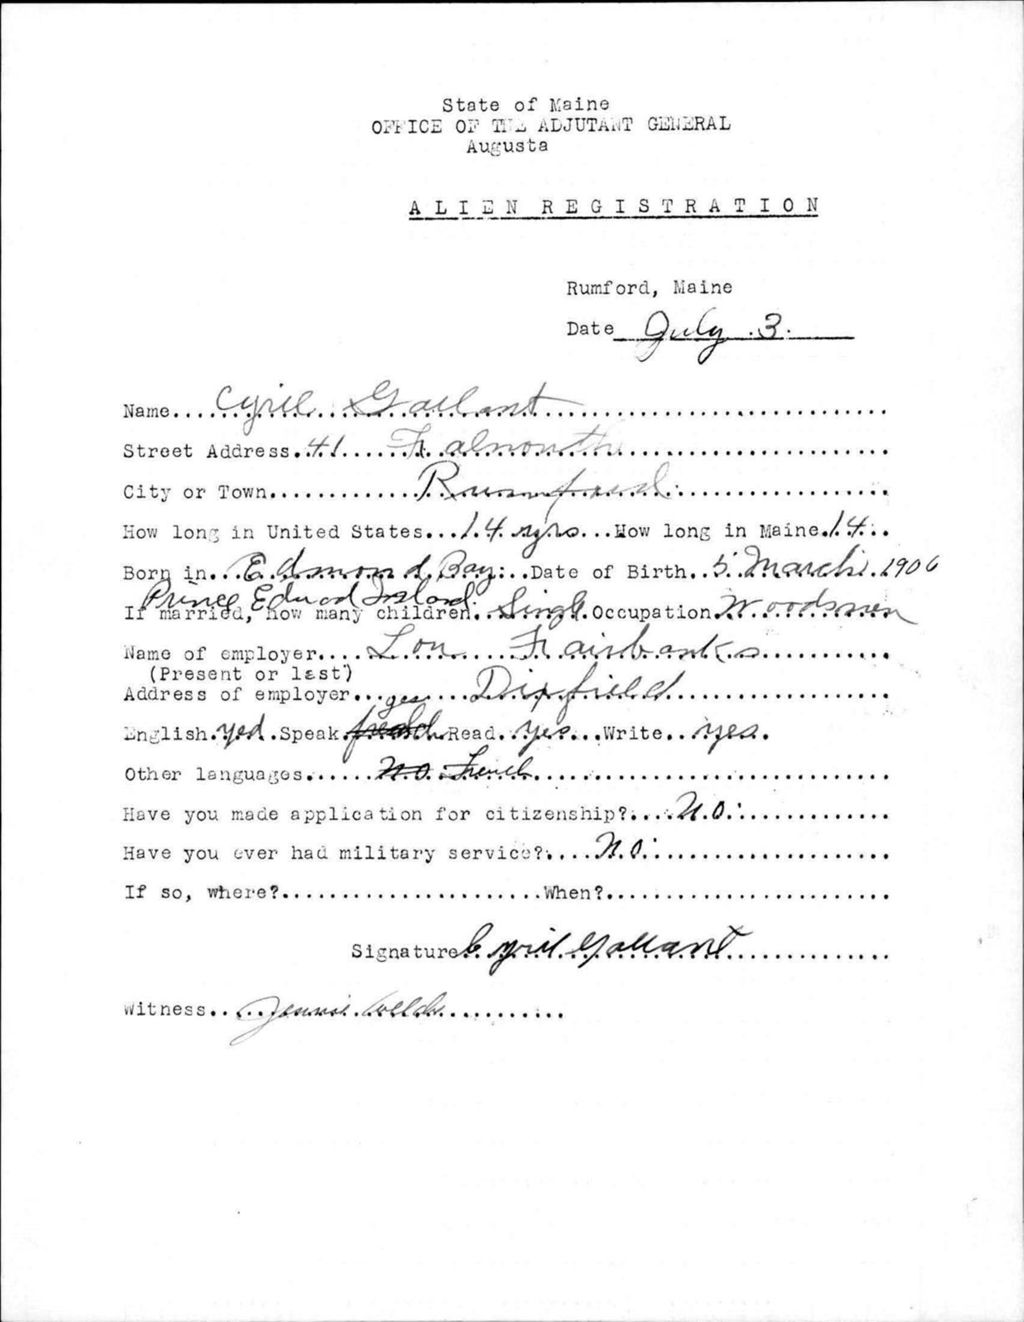 State of Maine
OFFICE OF THE ADJUTANT GENERAL
Augusta
ALIEN REGISTRATION
Rumford, Maine
Date July 3.
Name....Cyril Gallant
Street Address.41 Falmouth
City or Town....Rumford
How long in United States...14 yrs...How long in Maine.14..
Born in..Edmond Bay...Date of Birth..5 March 1906
Prince Edward Island
If married, how many children..Single.Occupation.Woodsmen
Name of employer....Lon Fairbanks
(Present or last)
Address of employer....Dixfield
yes
English.yes.Speak.french.Read..yes...Write..yes.
Other languages......no French
Have you made application for citizenship?....No.
Have you ever had military service?....No.
If so, where?....When?....
Signature Cyril Gallant
Witness..Jennie